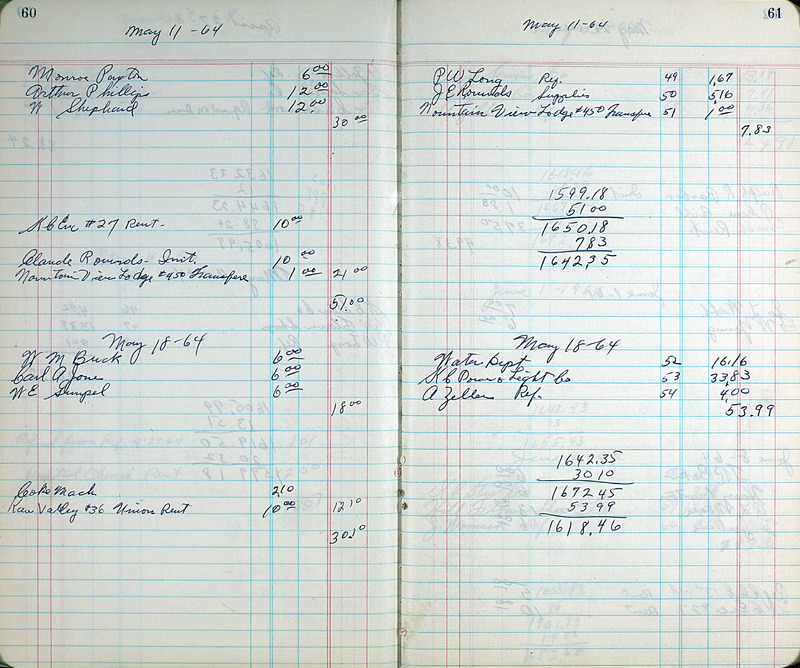 60
May 11-64
Monroe Payton 6 00
Arthur Phillips 12 00
W Shephard 12 00
30 00
Rent. 10 00
Claude Rounds- Init. 10 00
Mountain View Lodge #450 Transfere 1 00 21 00
51.00
May 18-64
W M Buck 6 00
Carl A Jones 6 00
W E 6 00
18 00
Coke Mach 2 10
Kaw Valley #36 Union Rent 10 00 12 10
30 10
61
May 11-64
P W Long Ref. 49 1,67
J E Rounds Supplies 50 5 16
Mountain View Lodge #450 Transfere 51 1 00
7.83
1599.18
51 00
1650.18
7 83
1642.35
May 18-64
Water Dept 52 16.16
K C Power & Light Co 53 33,83
A Zellers Ref. 54 4 00
53.99
1642.35
30 10
1672 45
53 99
1618.46